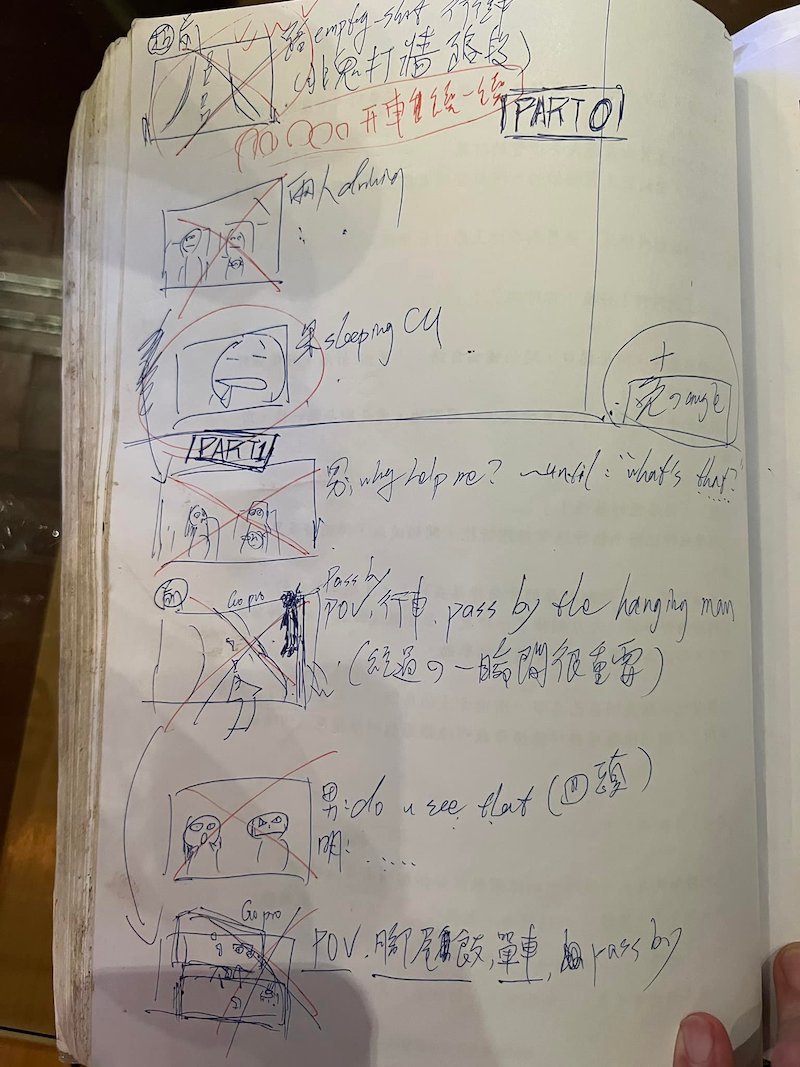 empty-shot
(鬼打牆路段)
PART 0
兩人driving
sleeping CU
+
のangle
PART 1
男: why help me? ~until: "what's that?"
Go pro
Pass by
POV, 行車, pass by the hanging man
(經過の一瞬間很重要)
男: do u see that (回頭)
明: .....
Go pro
POV. 腳尾飯, 單車, pass by